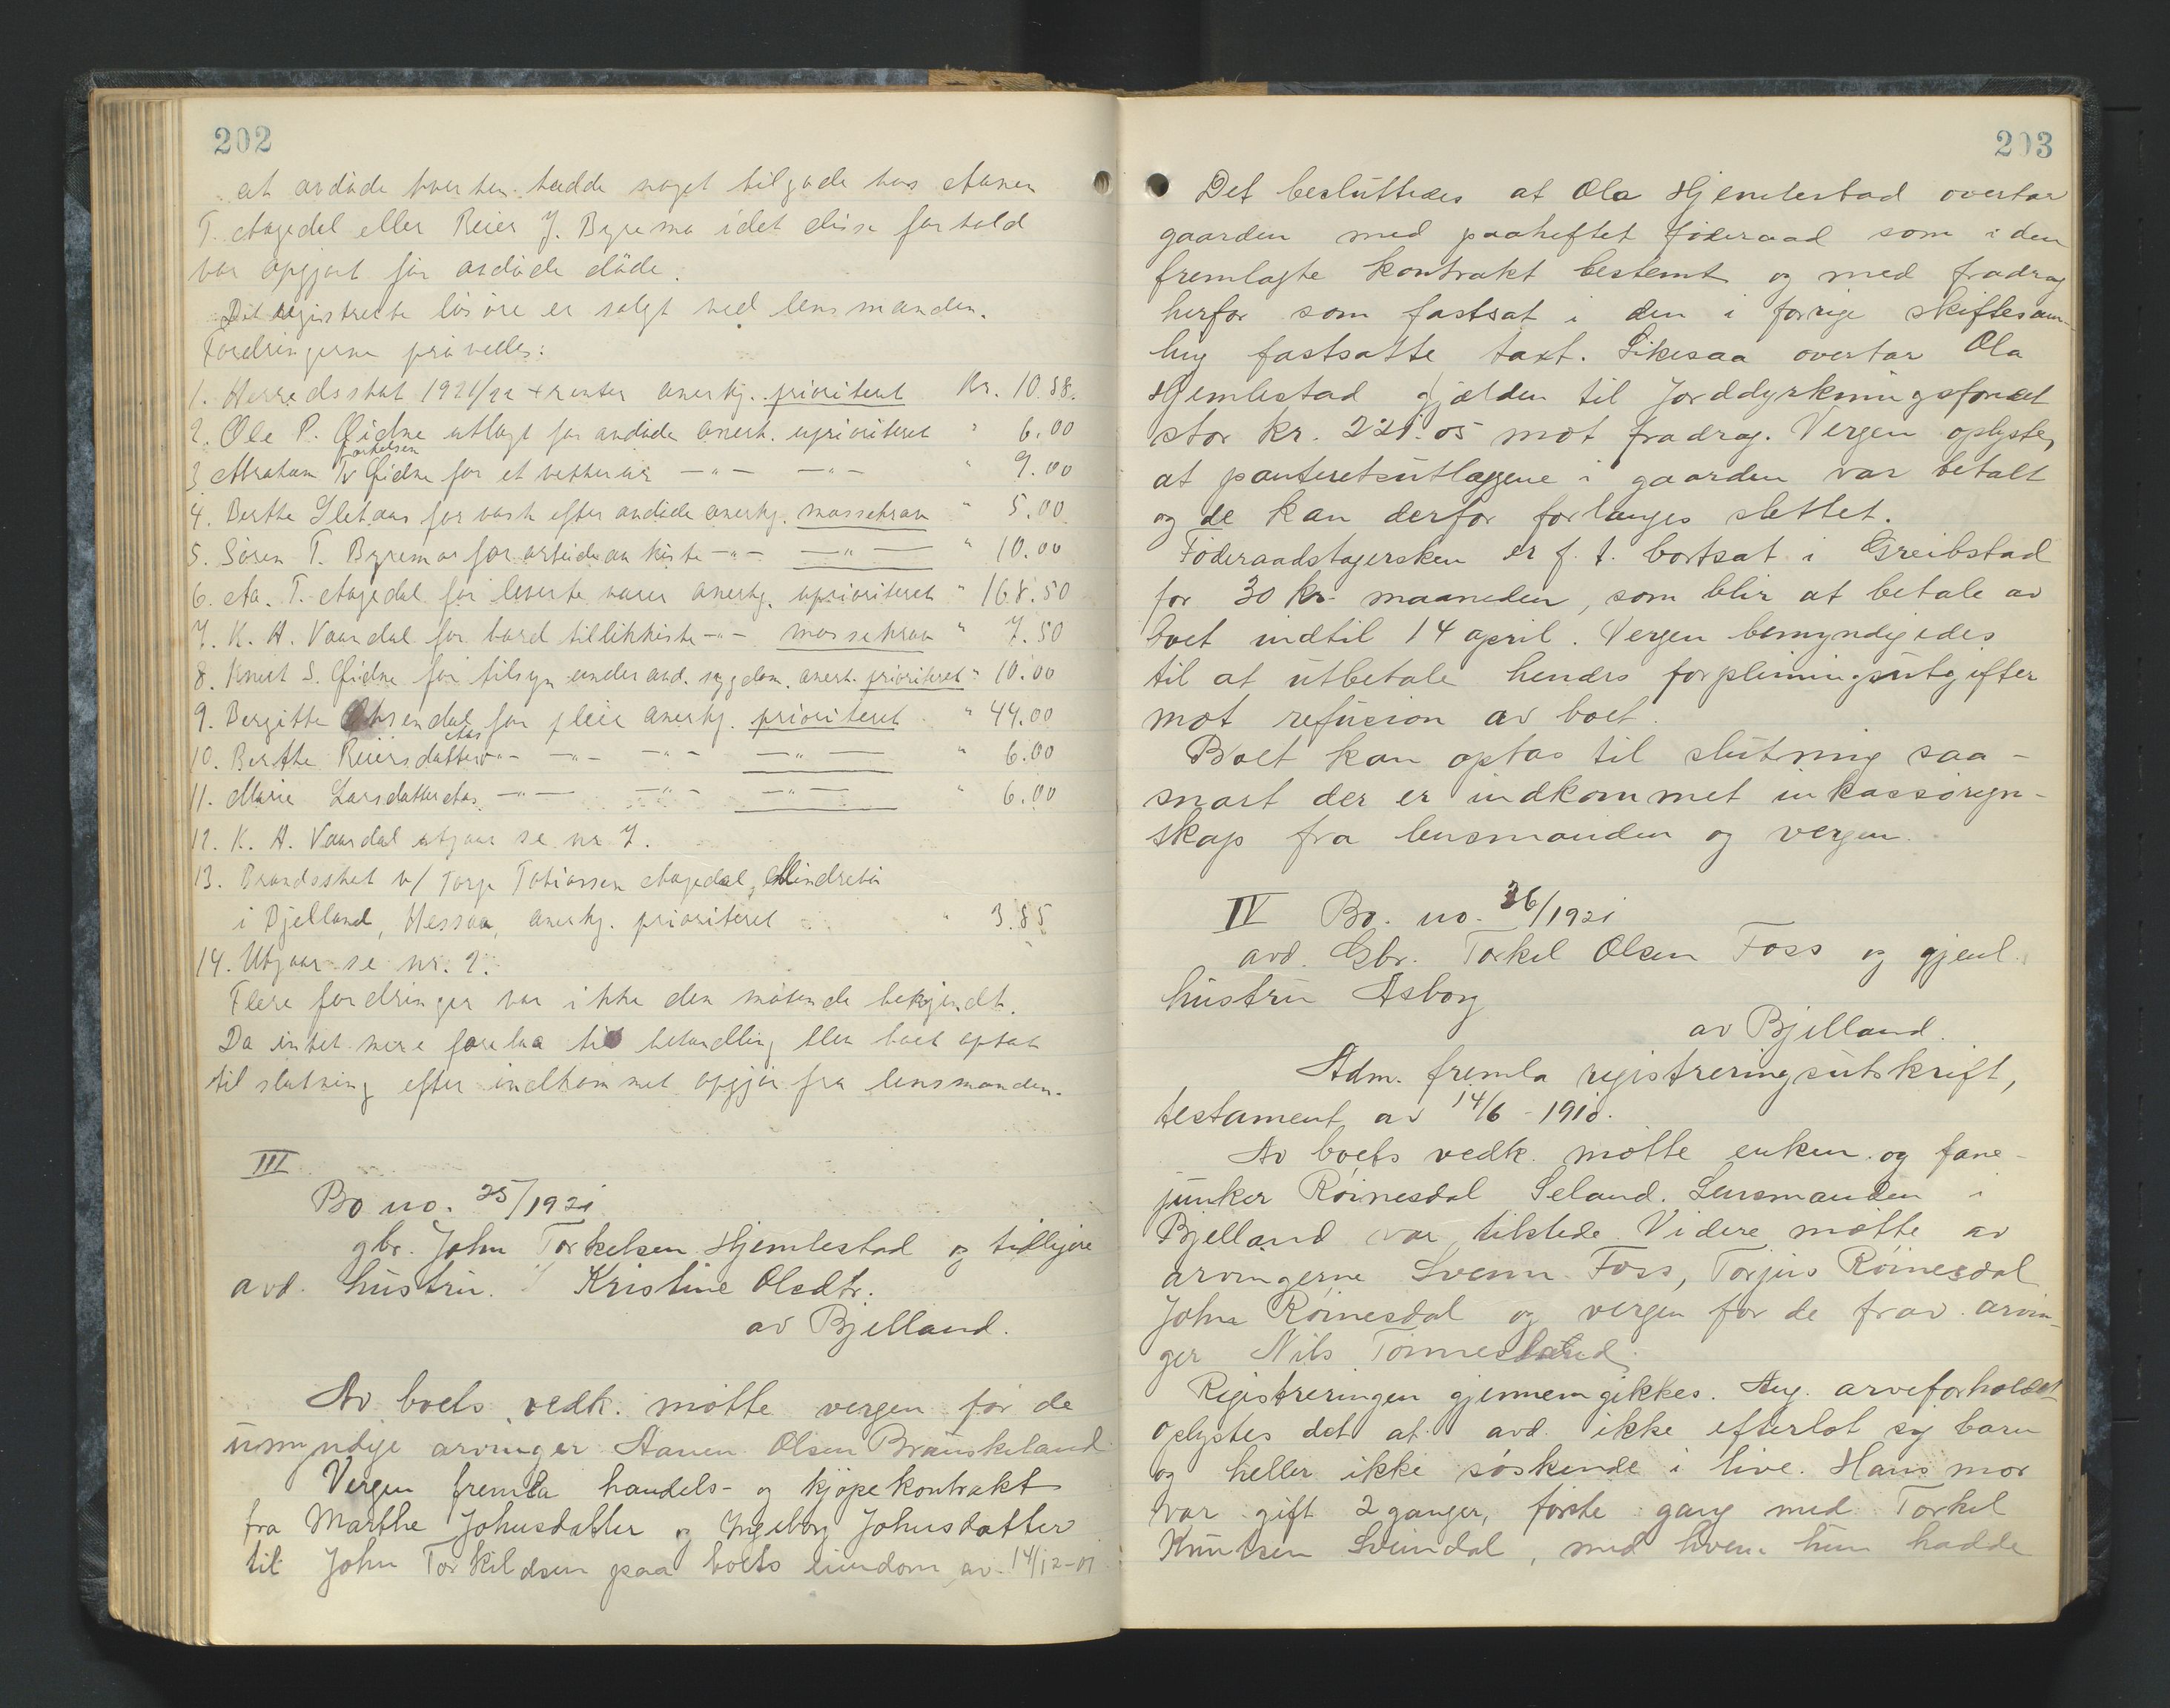 202
at avdöde hverken hadde noget tilgode hos Aanen
T. Aagedal eller Reier J. Byremo idet disse forhold
var opgjort før avdöde döde.
Det registrerte lösöre er solgt ved lensmanden.
Fordringerne prövedes:
1. Herredsskat 1921/22 + renter anerkj. prioritert Kr. 10.88.
2. Ole P. Öidne utlagt for avdöde anerk. uprioriteret " 6.00
3 Abraham Torkelsen Öidne for et vekkerur —"— —"— " 9.00
4. Berthe Sletaas for vask efter avdöde anerkj. massekrav " 5.00
5. Sören T. Byremo for arbeide av kiste —"— —"— " 10.00
6. Aa. T. Aagedal for leverte varer anerkj. uprioriteret " 168.50
7. K. A. Vaardal for bord til likkiste —"— massekrav " 7.50
8. Knut S. Öidne for tilsyn under avd. sygdom. anerk. prioriteret " 10.00
9. Bergitte for pleie anerkj. prioriteret " 44.00
10. Berthe Reiersdatter Aas —"— —"— —"— " 6.00
11. Marie Larsdatter Aas —"— —"— —"— " 6.00
12. K. A. Vaardal utgaar se nr 7.
13. Brandsskat v/ Torje Tobiassen Aagedal,
i Bjelland, anerkj. prioriteret " 3.85
14. Utgaar se nr. 2.
Flere fordringer var ikke den mötende bekjendt.
Da intet mere forelaa til behandling blev boet optat
til slutning efter indkommet opgjör fra lensmanden.
III
Bo no. 25/1921
gbr. John Torkelsen Hjemlestad og tidligere
avd. hustru Kristine Olsdtr.
av Bjelland.
Av boets vedk. møtte vergen for de
umyndige arvinger Aanen Olsen Brauskeland
Vergen fremla handels- og kjøpekontrakt
fra Marthe Johnsdatter og Ingeborg Johnsdatter
til John Torkildsen paa boets eiendom av 14/12-01
203
Det besluttedes at Ola Hjemlestad overtar
gaarden med paaheftet føderaad som i den
fremlagte kontrakt bestemt og med fradrag
herfor som fastsat i den i forrige skiftesam-
ling fastsatte taxt. Likesaa overtar Ola
Hjemlestad gjælden til Jorddyrkningsfondet
stor kr. 221.05 mot fradrag. Vergen oplyste,
at panteretsutlæggene i gaarden var betalt
og de kan derfor forlanges slettet.
Føderaadstagersken er f. t. bortsat i Greibstad
for 30 kr. maaneden, som blir at betale av
boet indtil 14 april. Vergen bemyndigedes
til at utbetale hendes forpleiningsutgifter
mot refusion av boet.
Boet kan optas til slutning saa-
snart der er indkommet inkassoregn-
skap fra lensmanden og vergen.
IV Bo. no. 26/1921
avd. Gbr. Torkel Olsen Foss og gjenl.
hustru Asborg
av Bjelland.
Adm. fremla registreringsutskrift,
testament av 14/6 - 1918.
Av boets vedk. møtte enken og fane-
junker Røinesdal Seland. Lensmanden i
Bjelland var tilstede. Videre møtte av
arvingerne Svenn Foss, Torjus Røinesdal
John Røinesdal og vergen for de frav. arvin-
ger Nils
Registreringen gjennemgikkes. Ang. arveforholdet
oplystes det at avd. ikke efterlot sig barn
og heller ikke søskende i live. Hans mor
var gift 2 ganger, første gang med Torkel
Knutsen Sveindal, med hvem hun hadde